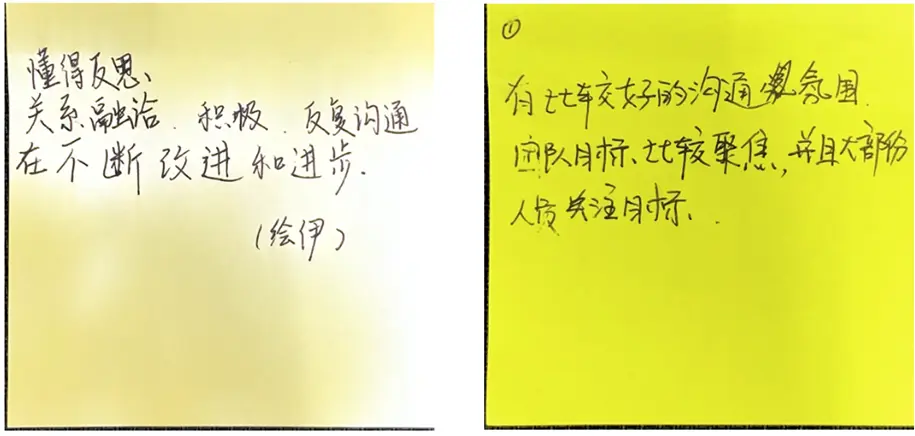 懂得反思、
关系融洽、积极、反复沟通
在不断改进和进步.
(绘伊)
①
有比较好的沟通氛围.
团队目标、比较聚焦,并且大部份
人员关注目标、.